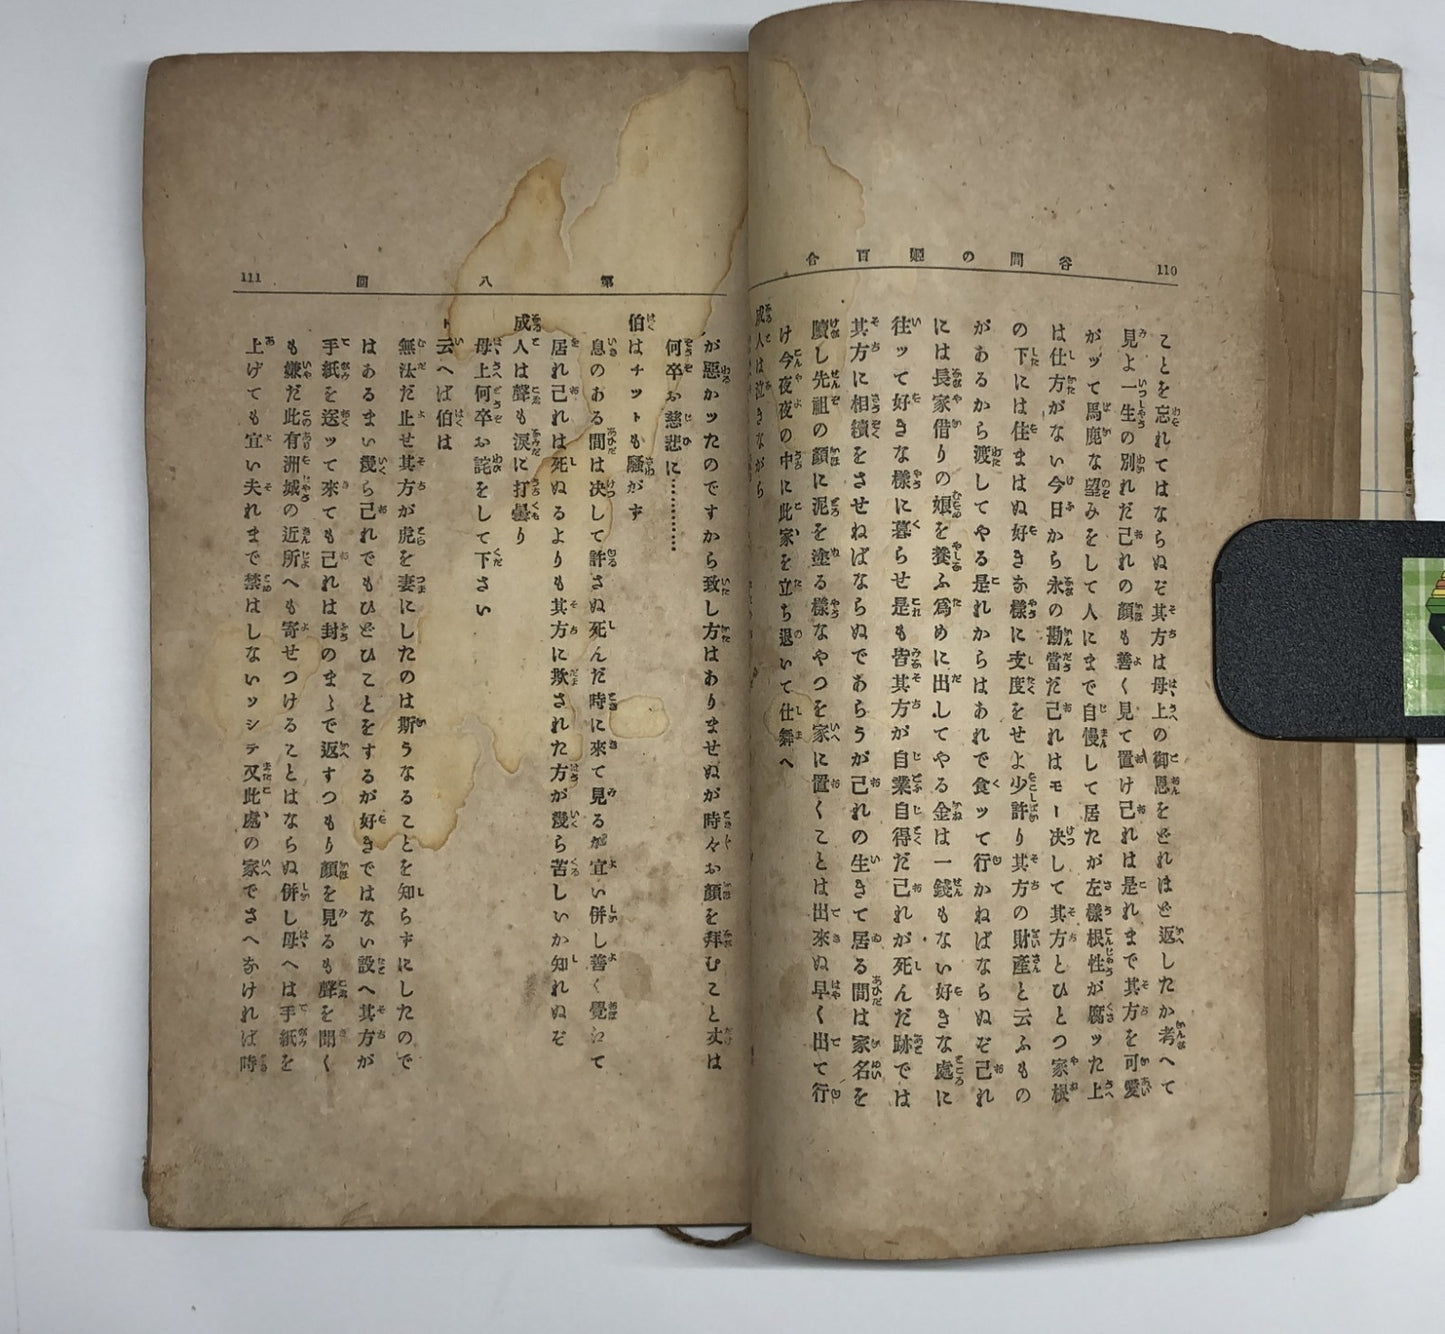 谷間の姫百合
110
ことを忘れてはならぬぞ其方は母上の御恩をどれほど返したか考へて
見よ一生の別れだ己れの顔も善く見て置け己れは是れまで其方を可愛
がッて馬鹿な望みをして人にまで自慢して居たが左様根性が腐ッた上
は仕方がない今日から永の勘當だ己れはモー决して其方とひとつ家根
の下には住まはぬ好きな樣に支度をせよ少許り其方の財產と云ふもの
があるから渡してやる是れからはあれで食ッて行かねばならぬぞ己れ
には長家借りの娘を養ふ爲めに出してやる金は一錢もない好きな處に
往ッて好きな樣に暮らせ是も皆其方が自業自得だ己れが死んだ跡では
其方に相續をさせねばならぬであらうが己れの生きて居る間は家名を
贖し先祖の顔に泥を塗る樣なやつを家に置くことは出來ぬ早く出て行
け今夜夜の中に此家を立ち退いて仕舞へ
成人は泣きながら
第八回
111
が惡かッたのですから致し方はありませぬが時々お顔を拜むこと丈は
何卒お慈悲に…………
伯はチットも騷がず
息のある間は决して許さぬ死んだ時に來て見るが宜い併し善く覺えて
居れ己れは死ぬるよりも其方に欺された方が幾ら苦しいか知れぬぞ
成人は聲も淚に打曇り
母上何卒お詫をして下さい
ト云へば伯は
無汰だ止せ其方が虎を妻にしたのは斯うなることを知らずにしたので
はあるまい幾ら己れでもひどひことをするが好きではない設へ其方が
手紙を送ッて來ても己れは封のまゝで返すつもり顔を見るも聲を聞く
も嫌だ此有洲城の近所へも寄せつけることはならぬ併し母へは手紙を
上げても宜い夫れまで禁はしないッシテ又此處の家でさへなければ時